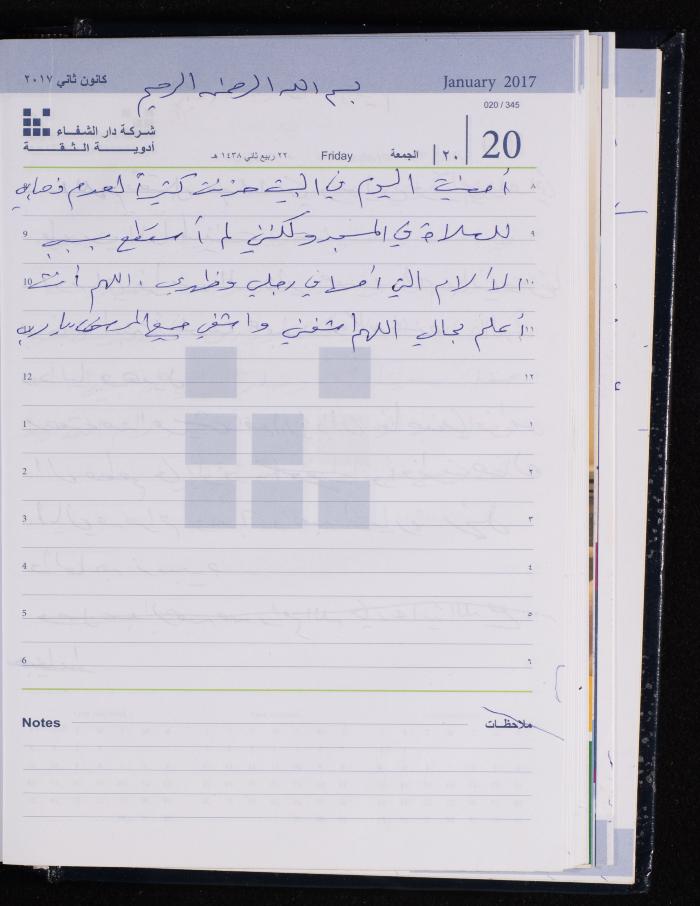 كانون ثاني ٢٠١٧
January 2017
بسم الله الرحمن الرحيم
020 / 345
شركة دار الشفاء
أدوية الثقة
٢٢ ربيع ثاني ١٤٣٨ هـ
Friday
الجمعة
٢٠
20
أمضيت اليوم في البيت حزنت كثيراً لعدم ذهابي
٨
للصلاة في المسجد ولكنني لم أستطع بسبب
9 ٩
الآلام التي أحس بها في رجلي وظهري . اللهم أنت
10 ١٠
أعلم بحالي اللهم اشفني واشفي جميع المرضى يا رب
١١
12 ١٢
1 ١
2 ٢
3 ٣
4 ٤
5 ٥
6 ٦
Notes ملاحظات